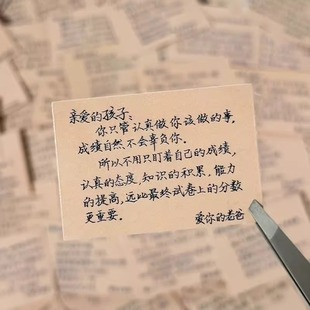 亲爱的孩子：
你只管认真做你该做的事，
成绩自然不会辜负你。
所以不用只盯着自己的成绩，
认真的态度，知识的积累，能力
的提高，远比最终试卷上的分数
更重要。
爱你的老爸